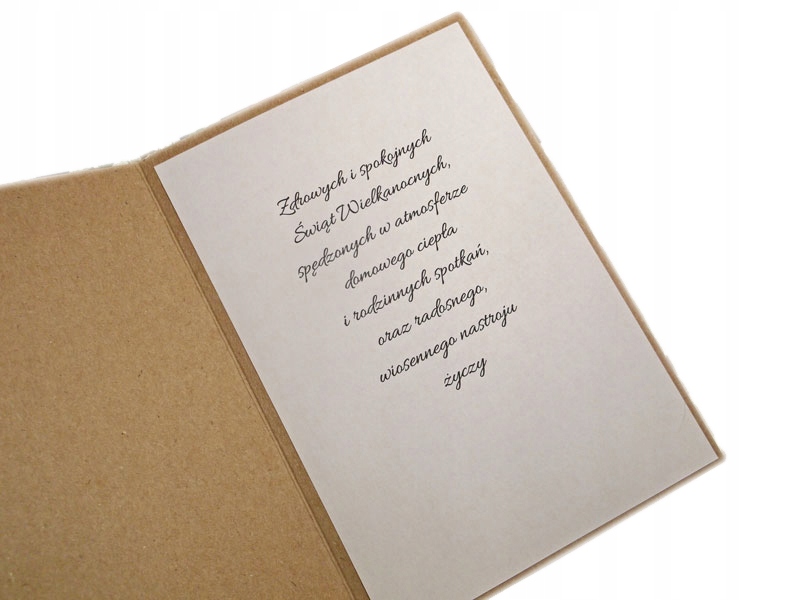 Zdrowych i spokojnych
Świąt Wielkanocnych,
spędzonych w atmosferze
domowego ciepła
i rodzinnych spotkań,
oraz radosnego,
wiosennego nastroju
życzy